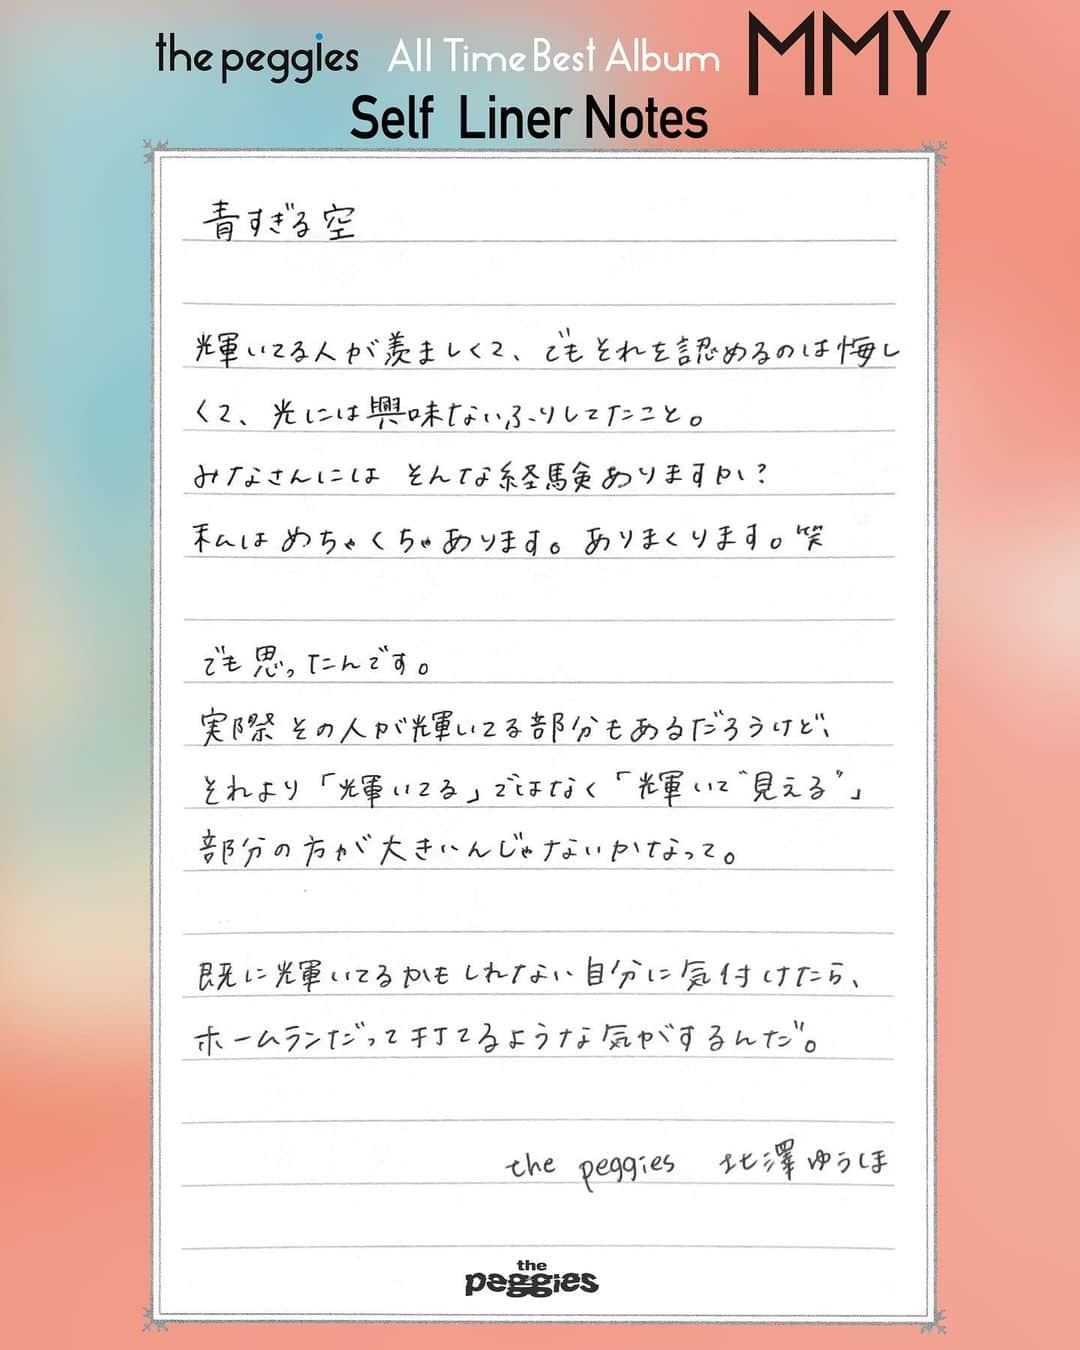 the peggies All Time Best Album MMY
Self Liner Notes
青すぎる空
輝いてる人が羨ましくて、でもそれを認めるのは悔し
くて、光には興味ないふりしてたこと。
みなさんには そんな経験ありますか?
私は めちゃくちゃあります。ありまくります。笑
でも思ったんです。
実際その人が輝いてる部分もあるだろうけど、
それより「輝いてる」ではなく「輝いて"見える"」
部分の方が大きいんじゃないかなって。
既に輝いてるかもしれない自分に気付けたら、
ホームランだって打てるような気がするんだ。
the peggies 北澤ゆうほ
the
peggies